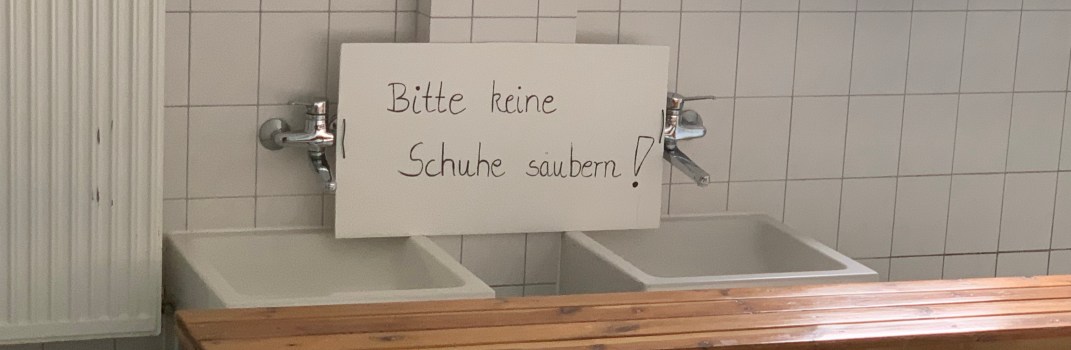 Bitte keine
Schuhe säubern!